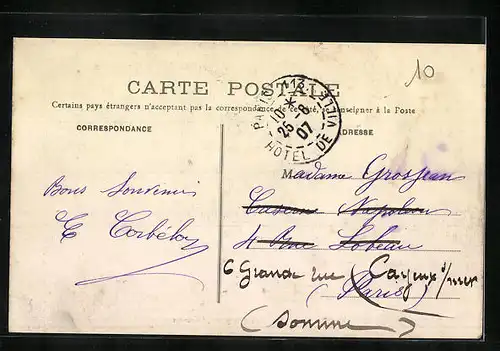 10
CARTE POSTALE
Certains pays étrangers n'acceptent pas la correspondance de ce côté, se renseigner à la Poste
PARIS 113
10 *
25 - 8
07
HOTEL DE VILLE
CORRESPONDANCE
ADRESSE
Bons Souvenirs
E Corbélay
Madame Grosjean
Caserne Napoléon
4 Rue Lobeau
6 Grande rue (Cayeux s/mer
(Paris)
(Somme)